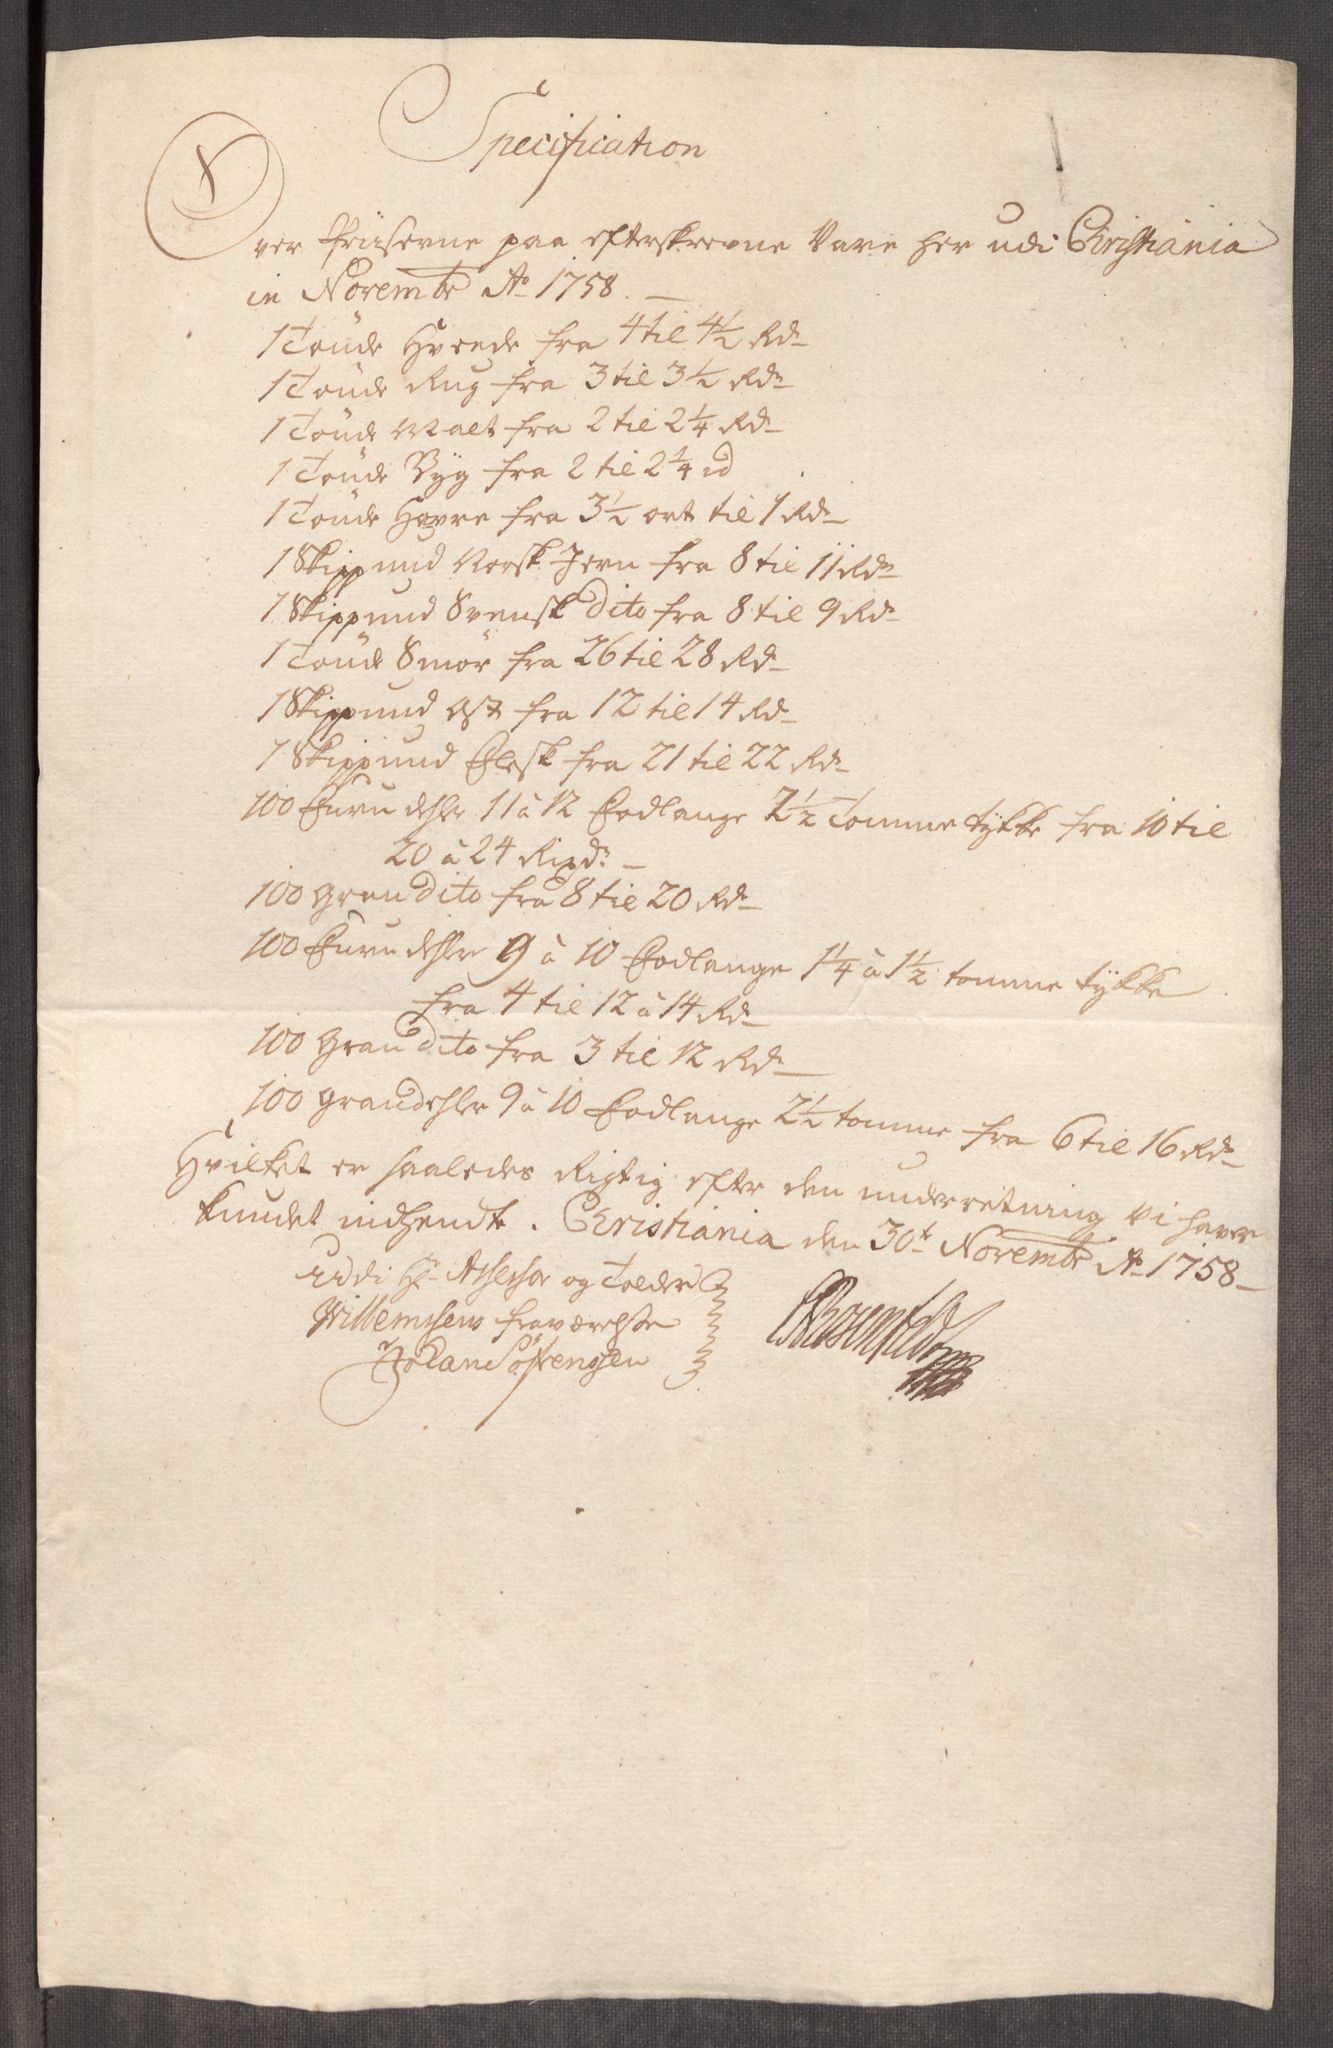 Specification
Over Priiserne paa efterskrevne Vare her udi Christiania
in Novembr Ao 1758.
1 Tönde Hvede fra 4 til 4½ Rdr
1 Tönde Rug fra 3 til 3½ Rdr
1 Tönde Malt fra 2 til 2¼ Rdr
1 Tönde Byg fra 2 til 2¼ id
1 Tönde Havre fra 3½ ort til 1 Rdr
1 Skippund Norsk Jern fra 8 til 11 Rdr
1 Skippund Svensk dito fra 8 til 9 Rdr
1 Tönde Smör fra 26 til 28 Rdr
1 Skippund Ost fra 12 til 14 Rdr
1 Skippund Flesk fra 21 til 22 Rdr
100 Furu dehler 11 à 12 Fodlange 2½ Tomme tykke fra 10 til
20 à 24 Rixdr
100 Gran dito fra 8 til 20 Rdr
100 Furu dehler 9 à 10 Fodlange 1¼ à 1½ tomme tykke
fra 4 til 12 à 14 Rdr
100 Gran dito fra 3 til 12 Rdr
100 Grandehler 9 à 10 Fodlange 2½ tomme fra 6 til 16 Rdr
Hvilket er saaledes Rigtig efter den underretning vi haver
kundet indhendte. Christiania den 30t Novembr Ao 1758
Udi Hr Assessor og Tolder
Willemsens fraværelse
Johan Sörensen